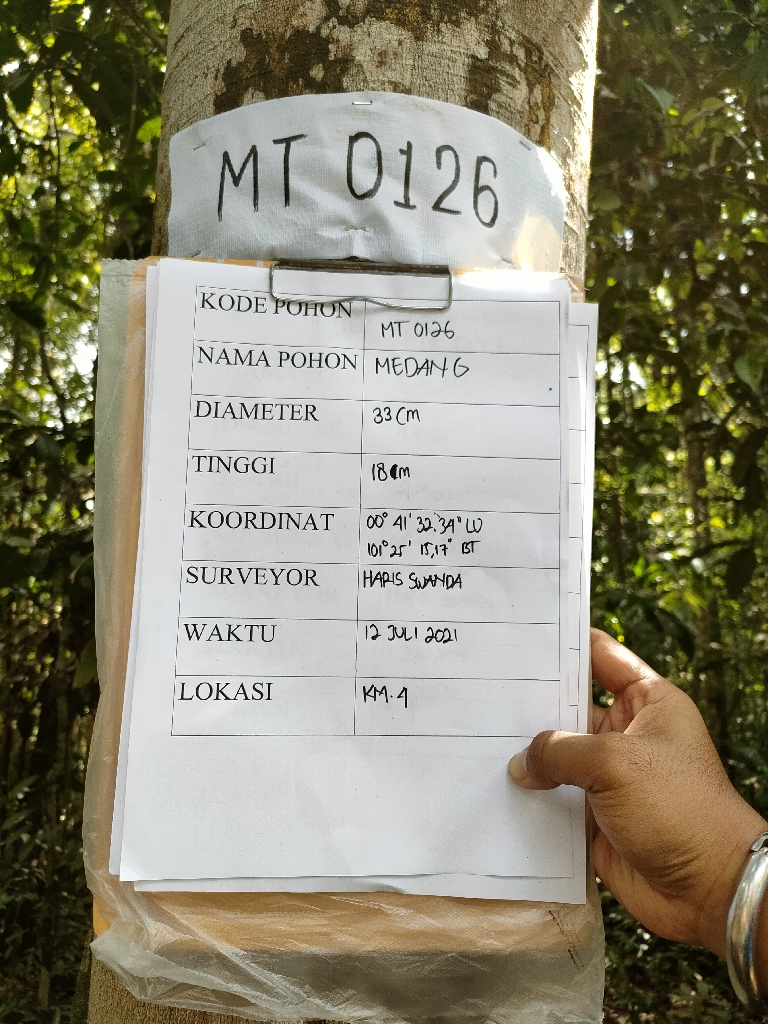 MT 0126
KODE POHON MT 0126
NAMA POHON MEDANG
DIAMETER 33 Cm
TINGGI 18 m
KOORDINAT 00° 41' 32.34" LU
101° 25' 15,17" BT
SURVEYOR HARIS SWANDA
WAKTU 12 JULI 2021
LOKASI KM.4